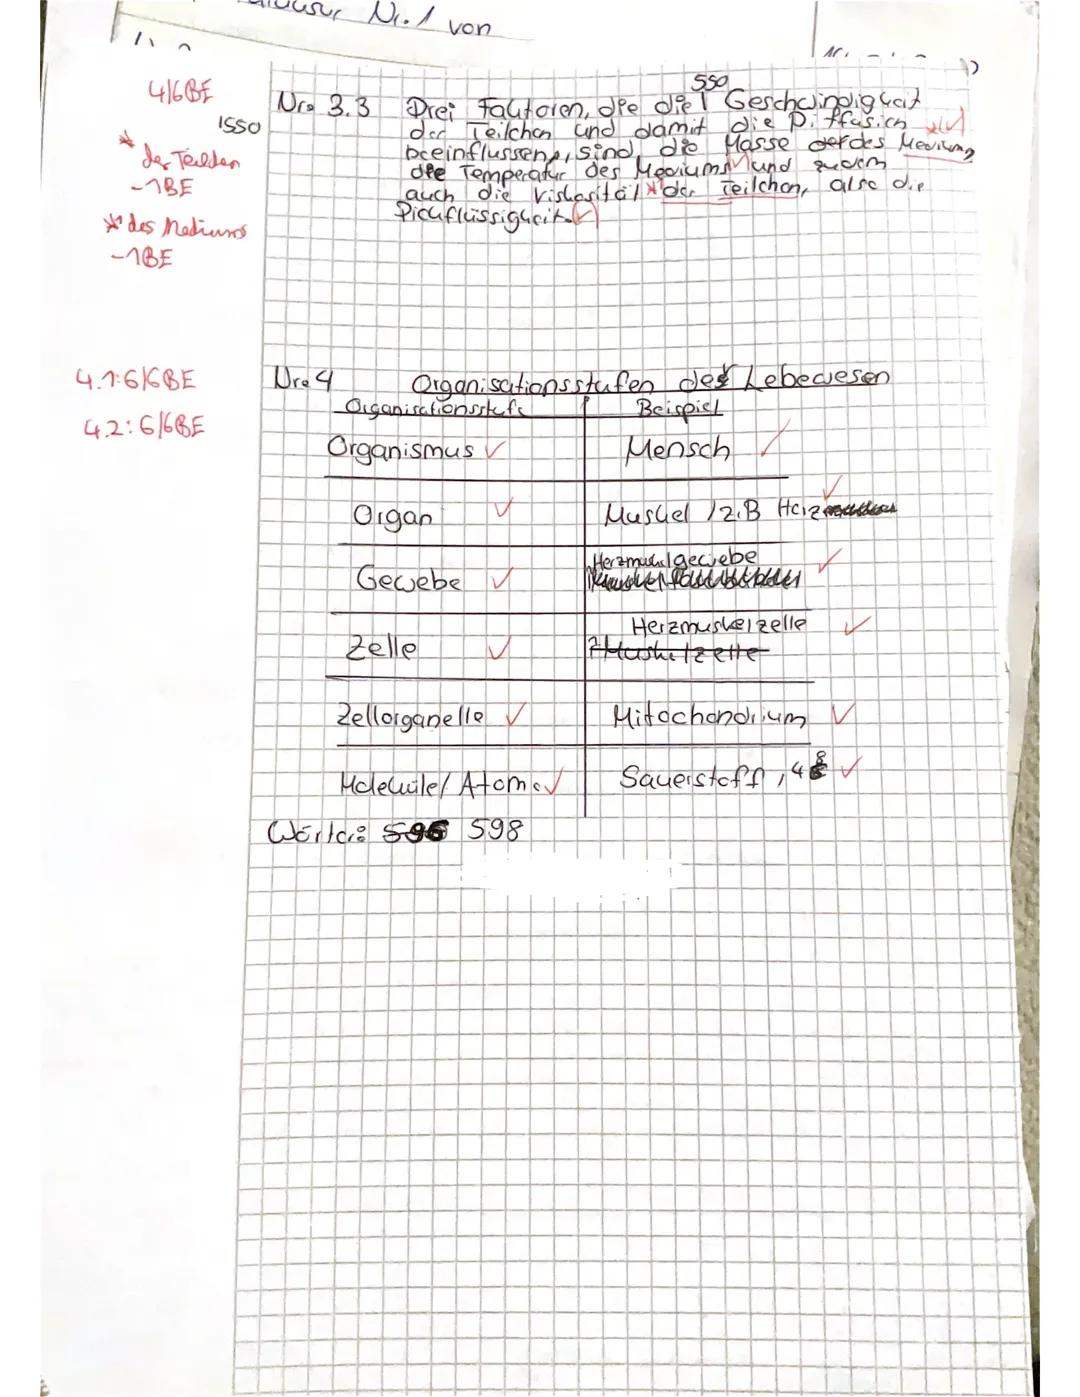 Nr. 1 von
4/6BE
550
Nr. 3.3 Drei Faktoren, die die Geschwindigkeit
1550
der Teilchen und damit die Diffusion
beeinflussen, sind die Masse der des Mediums,
* der Teilchen
-1BE
die Temperatur des Mediums und zudem
auch die Viskosität * der Teilchen, also die
Dickflüssigkeit.
*' des Mediums
-1BE
4.1: 6/6BE
4.2: 6/6BE
Nr. 4 Organisationsstufen des Lebewesen
Organisationsstufe Beispiel
Organismus Mensch
Organ Muskel / z.B Herz
Gewebe Herzmuskelgewebe
Zelle Herzmuskelzelle
Muskelzelle
Zellorganelle Mitochondrium
Moleküle/ Atome Sauerstoff, 48
Wörter: 596 598